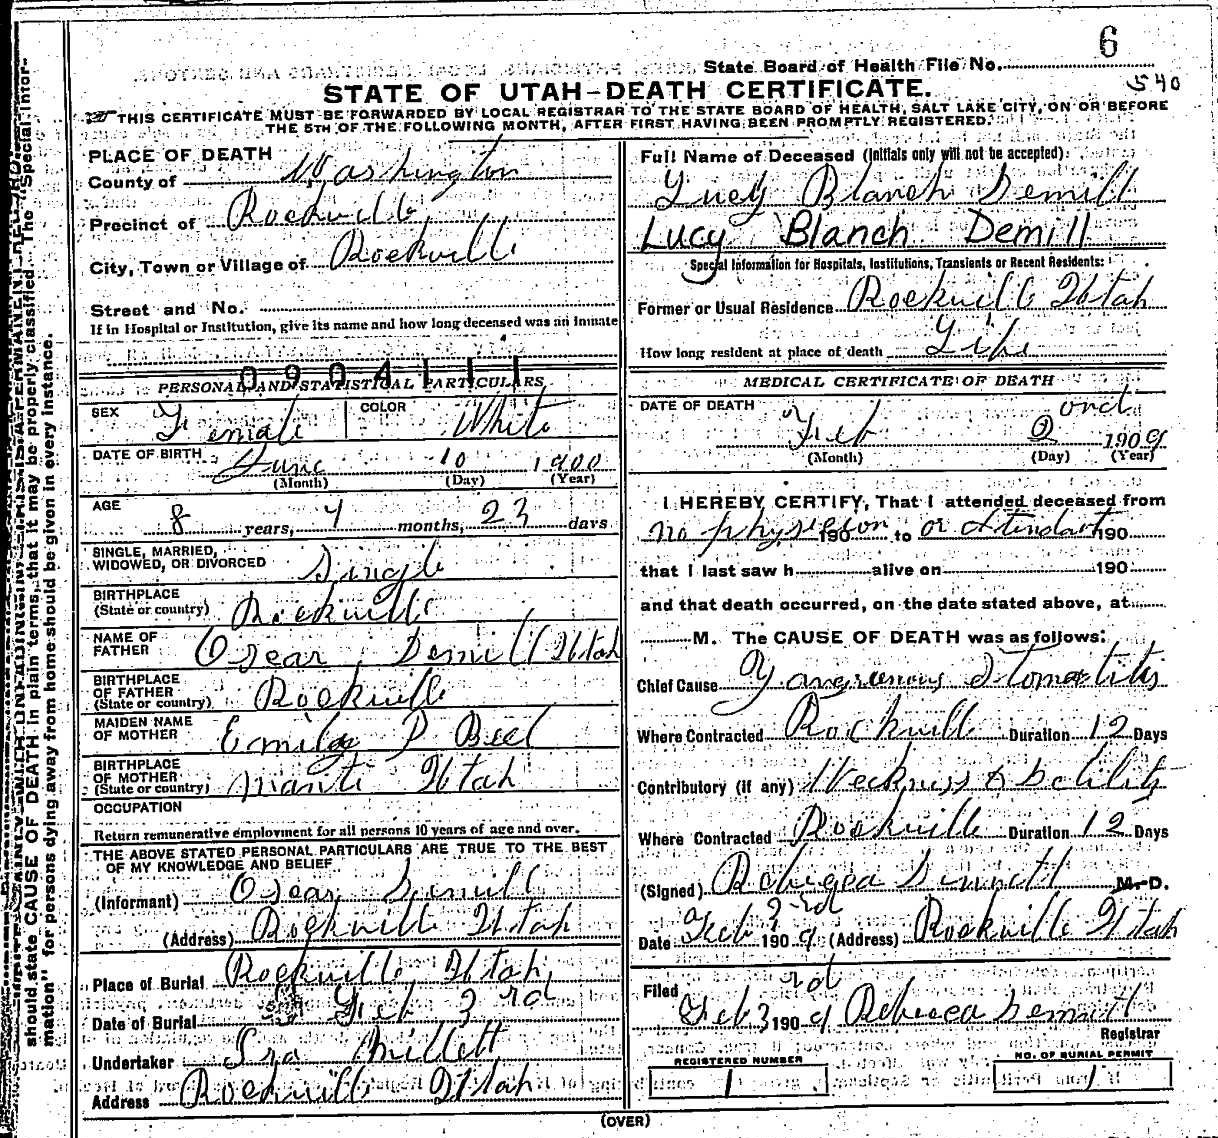 6
State Board of Health File No.
540
STATE OF UTAH–DEATH CERTIFICATE.
THIS CERTIFICATE MUST BE FORWARDED BY LOCAL REGISTRAR TO THE STATE BOARD OF HEALTH, SALT LAKE CITY, ON OR BEFORE
THE 5TH OF THE FOLLOWING MONTH, AFTER FIRST HAVING BEEN PROMPTLY REGISTERED.
PLACE OF DEATH
County of Washington
Precinct of Rockville
City, Town or Village of Rockville
Street and No.
If in Hospital or Institution, give its name and how long deceased was an inmate
0904111
PERSONAL AND STATISTICAL PARTICULARS
SEX Female COLOR White
DATE OF BIRTH June 10 1900
(Month) (Day) (Year)
AGE
8 years, 7 months, 23 days
SINGLE, MARRIED,
WIDOWED, OR DIVORCED Single
BIRTHPLACE
(State or country) Rockville
NAME OF
FATHER Oscar Demill Utah
BIRTHPLACE
OF FATHER
(State or country) Rockville
MAIDEN NAME
OF MOTHER Emily P Beel
BIRTHPLACE
OF MOTHER
(State or country) Manti Utah
OCCUPATION
Return remunerative employment for all persons 10 years of age and over.
THE ABOVE STATED PERSONAL PARTICULARS ARE TRUE TO THE BEST
OF MY KNOWLEDGE AND BELIEF
(Informant) Oscar Demill
(Address) Rockville Utah
Place of Burial Rockville Utah
Date of Burial Feb 3rd
Undertaker Ira Millett
Address Rockville Utah
Full Name of Deceased (Initials only will not be accepted):
Lucy Blanch Demill
Lucy Blanch Demill
Special Information for Hospitals, Institutions, Transients or Recent Residents:
Former or Usual Residence Rockville Utah
How long resident at place of death Life
MEDICAL CERTIFICATE OF DEATH
DATE OF DEATH
Feb 2ond 1909
(Month) (Day) (Year)
I HEREBY CERTIFY, That I attended deceased from
no physician 190 to or attendant 190
that I last saw h alive on 190
and that death occurred, on the date stated above, at
M. The CAUSE OF DEATH was as follows:
Chief Cause Gangrenous Stomatitis
Where Contracted Rockville Duration 12 Days
Contributory (if any) Weckness & bability
Where Contracted Rockville Duration 12 Days
(Signed) Rebecca Demill M.D.
Date Feb 3rd 1909 (Address) Rockville Utah
Filed
Feb 3rd 1909 Rebecca Demill
Registrar
REGISTERED NUMBER
1
NO. OF BURIAL PERMIT
1
(OVER)
should state CAUSE OF DEATH in plain terms, that it may be properly classified. The "Special Infor-
mation" for persons dying away from home should be given in every instance.